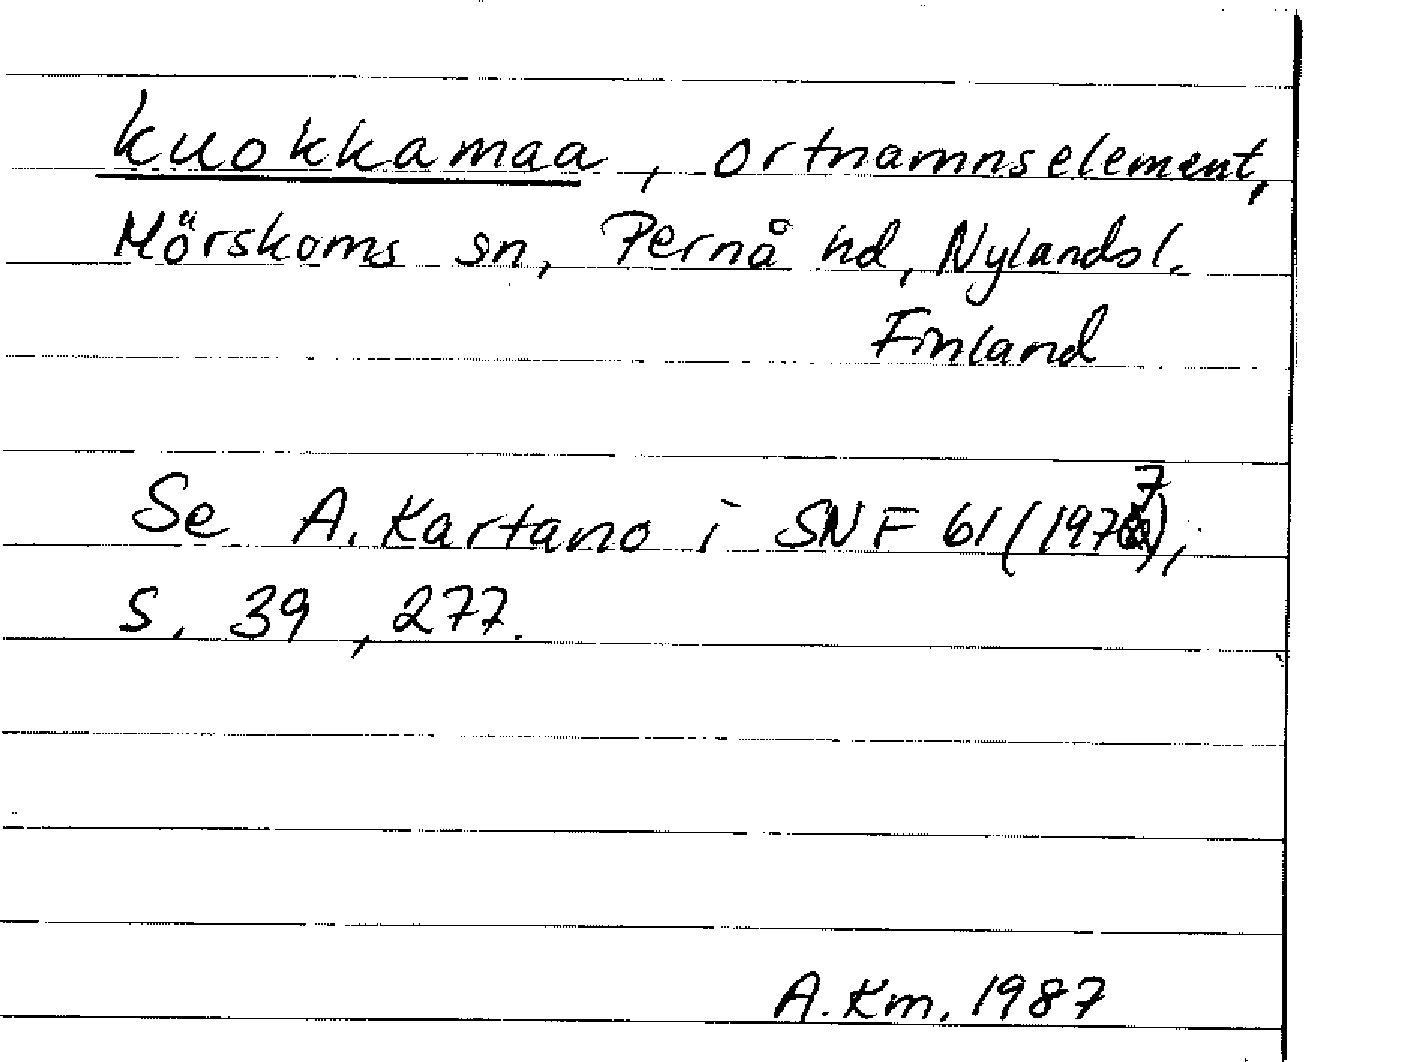 kuokkamaa, ortnamnselement,
Mörskoms sn, Pernå hd, Nylandsl.
Finland
Se A. Kartano i SNF 61 (1977),
s. 39, 277.
A. Km. 1987